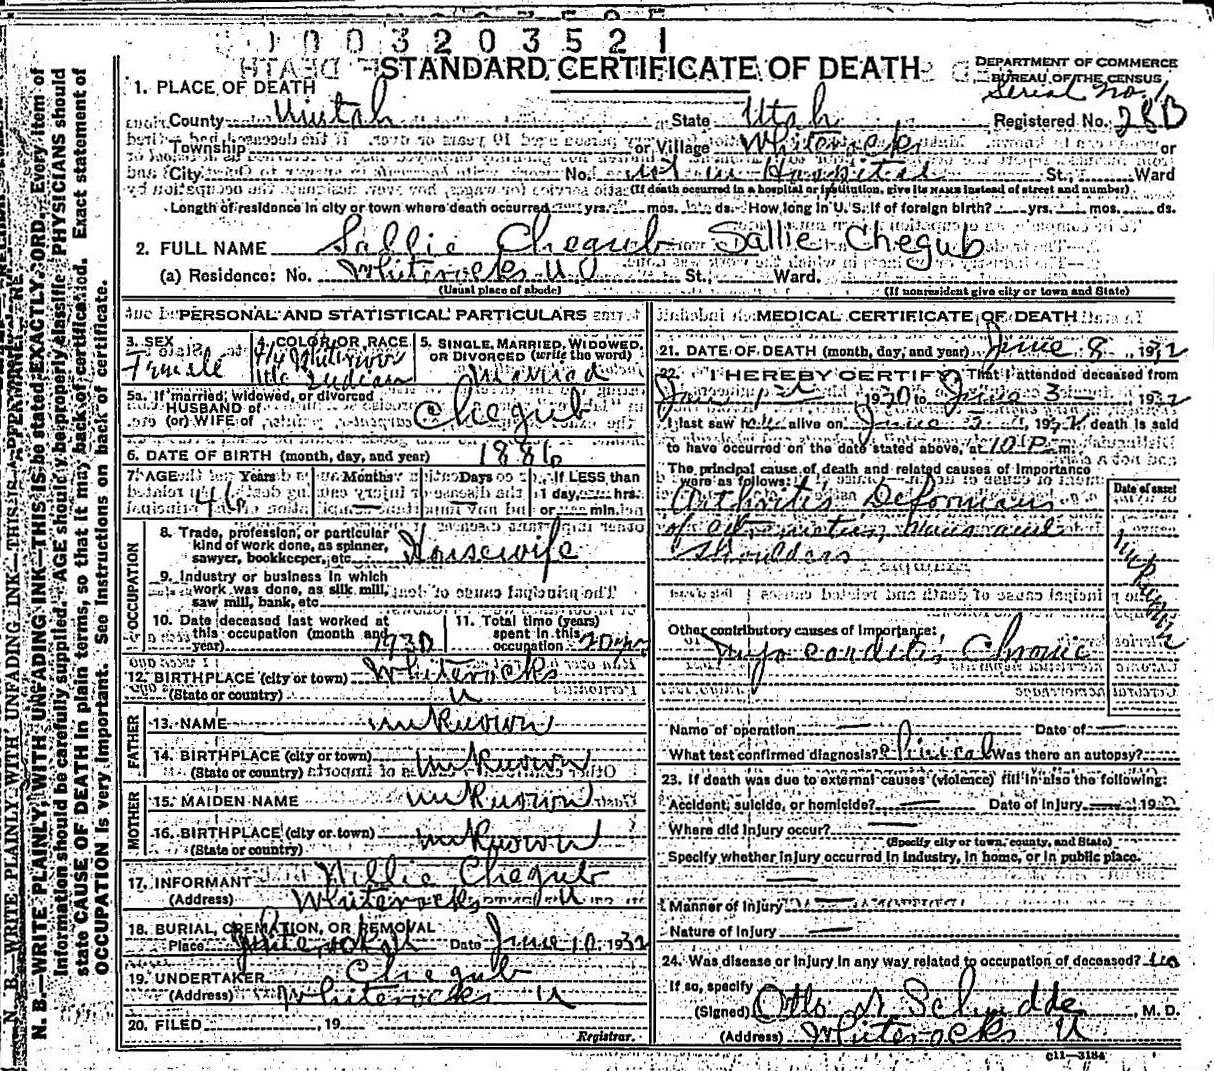 1003203521
STANDARD CERTIFICATE OF DEATH
DEPARTMENT OF COMMERCE
BUREAU OF THE CENSUS
Serial No. 1
1. PLACE OF DEATH
County Uintah State Utah Registered No. 28B
Township or Village Whiterocks or
City No. not in Hospital St., Ward
(If death occurred in a hospital or institution, give its NAME instead of street and number)
Length of residence in city or town where death occurred yrs. mos. ds. How long in U. S. if of foreign birth? yrs. mos. ds.
2. FULL NAME Sallie Chegub Sallie Chegub
(a) Residence: No. Whiterocks U St., Ward.
(Usual place of abode) (If nonresident give city or town and State)
PERSONAL AND STATISTICAL PARTICULARS
3. SEX
Female
4. COLOR OR RACE
4/4
Ute Indian
5. SINGLE, MARRIED, WIDOWED,
OR DIVORCED (write the word)
Married
5a. If married, widowed, or divorced
HUSBAND of
(or) WIFE of Chegub
6. DATE OF BIRTH (month, day, and year) 1886
7. AGE Years Months Days If LESS than
46 — 1 day, hrs.
or min.
OCCUPATION
8. Trade, profession, or particular
kind of work done, as spinner,
sawyer, bookkeeper, etc. Housewife
9. Industry or business in which
work was done, as silk mill,
saw mill, bank, etc
10. Date deceased last worked at
this occupation (month and
year) 1930
11. Total time (years)
spent in this
occupation 20 yrs
12. BIRTHPLACE (city or town) Whiterocks
(State or country) U
FATHER
13. NAME unknown
14. BIRTHPLACE (city or town) unknown
(State or country)
MOTHER
15. MAIDEN NAME unknown
16. BIRTHPLACE (city or town) unknown
(State or country)
17. INFORMANT Willie Chegub
(Address) Whiterocks U
18. BURIAL, CREMATION, OR REMOVAL
Place Whiterocks U Date June 10, 1932
19. UNDERTAKER Chegub
(Address) Whiterocks U
20. FILED , 19
Registrar.
MEDICAL CERTIFICATE OF DEATH
21. DATE OF DEATH (month, day, and year) June 8, 1932
22. I HEREBY CERTIFY, That I attended deceased from
Jan 1st 1930 to June 3 1932
I last saw h alive on June 1932 death is said
to have occurred on the date stated above, at 10 P m.
The principal cause of death and related causes of importance
were as follows:
Date of onset
Arthritis Deformans
of
shoulders
unknown
Other contributory causes of importance:
Myocarditis, Chronic
Name of operation — Date of —
What test confirmed diagnosis? Clinical Was there an autopsy?
23. If death was due to external causes (violence) fill in also the following:
Accident, suicide, or homicide? — Date of injury — 19
Where did injury occur? —
(Specify city or town, county, and State)
Specify whether injury occurred in industry, in home, or in public place.
—
Manner of injury —
Nature of injury —
24. Was disease or injury in any way related to occupation of deceased? no
If so, specify
(Signed) Otto Schmidde, M. D.
(Address) Whiterocks U
C11—3184
N. B.—WRITE PLAINLY, WITH UNFADING INK—THIS IS A PERMANENT RECORD. Every item of
Information should be carefully supplied. AGE should be stated EXACTLY. PHYSICIANS should
state CAUSE OF DEATH in plain terms, so that it may be properly classified. Exact statement of
OCCUPATION is very important. See instructions on back of certificate.